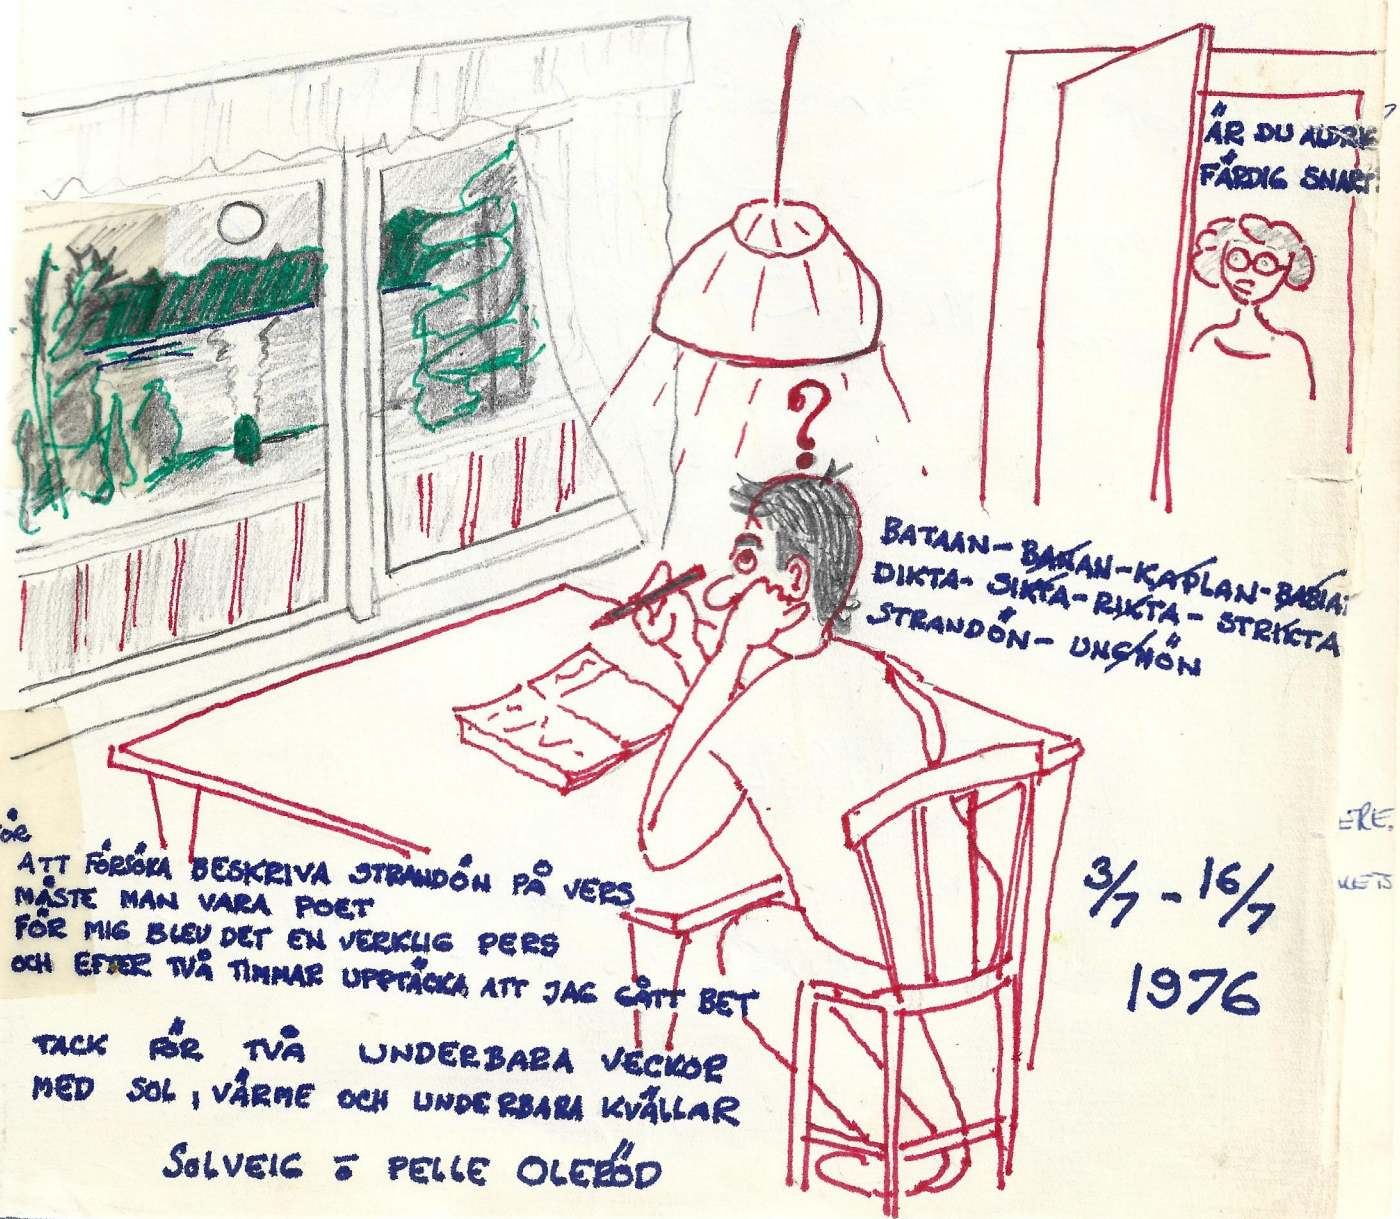 ÄR DU ALDRIG
FÄRDIG SNART?
?
BATAAN - BANAN - KAPLAN - BABIAN
DIKTA - SIKTA - RIKTA - STRIKTA
STRANDÖN - UNGMÖN
FÖR
ATT FÖRSÖKA BESKRIVA STRANDÖN PÅ VERS
MÅSTE MAN VARA POET
FÖR MIG BLEV DET EN VERKLIG PERS
OCH EFTER TVÅ TIMMAR UPPTÄCKA ATT JAG GÅTT BET
TACK FÖR TVÅ UNDERBARA VECKOR
MED SOL, VÄRME OCH UNDERBARA KVÄLLAR
SOLVEIG o PELLE OLERÖD
3/7 - 16/7
1976
ERE.